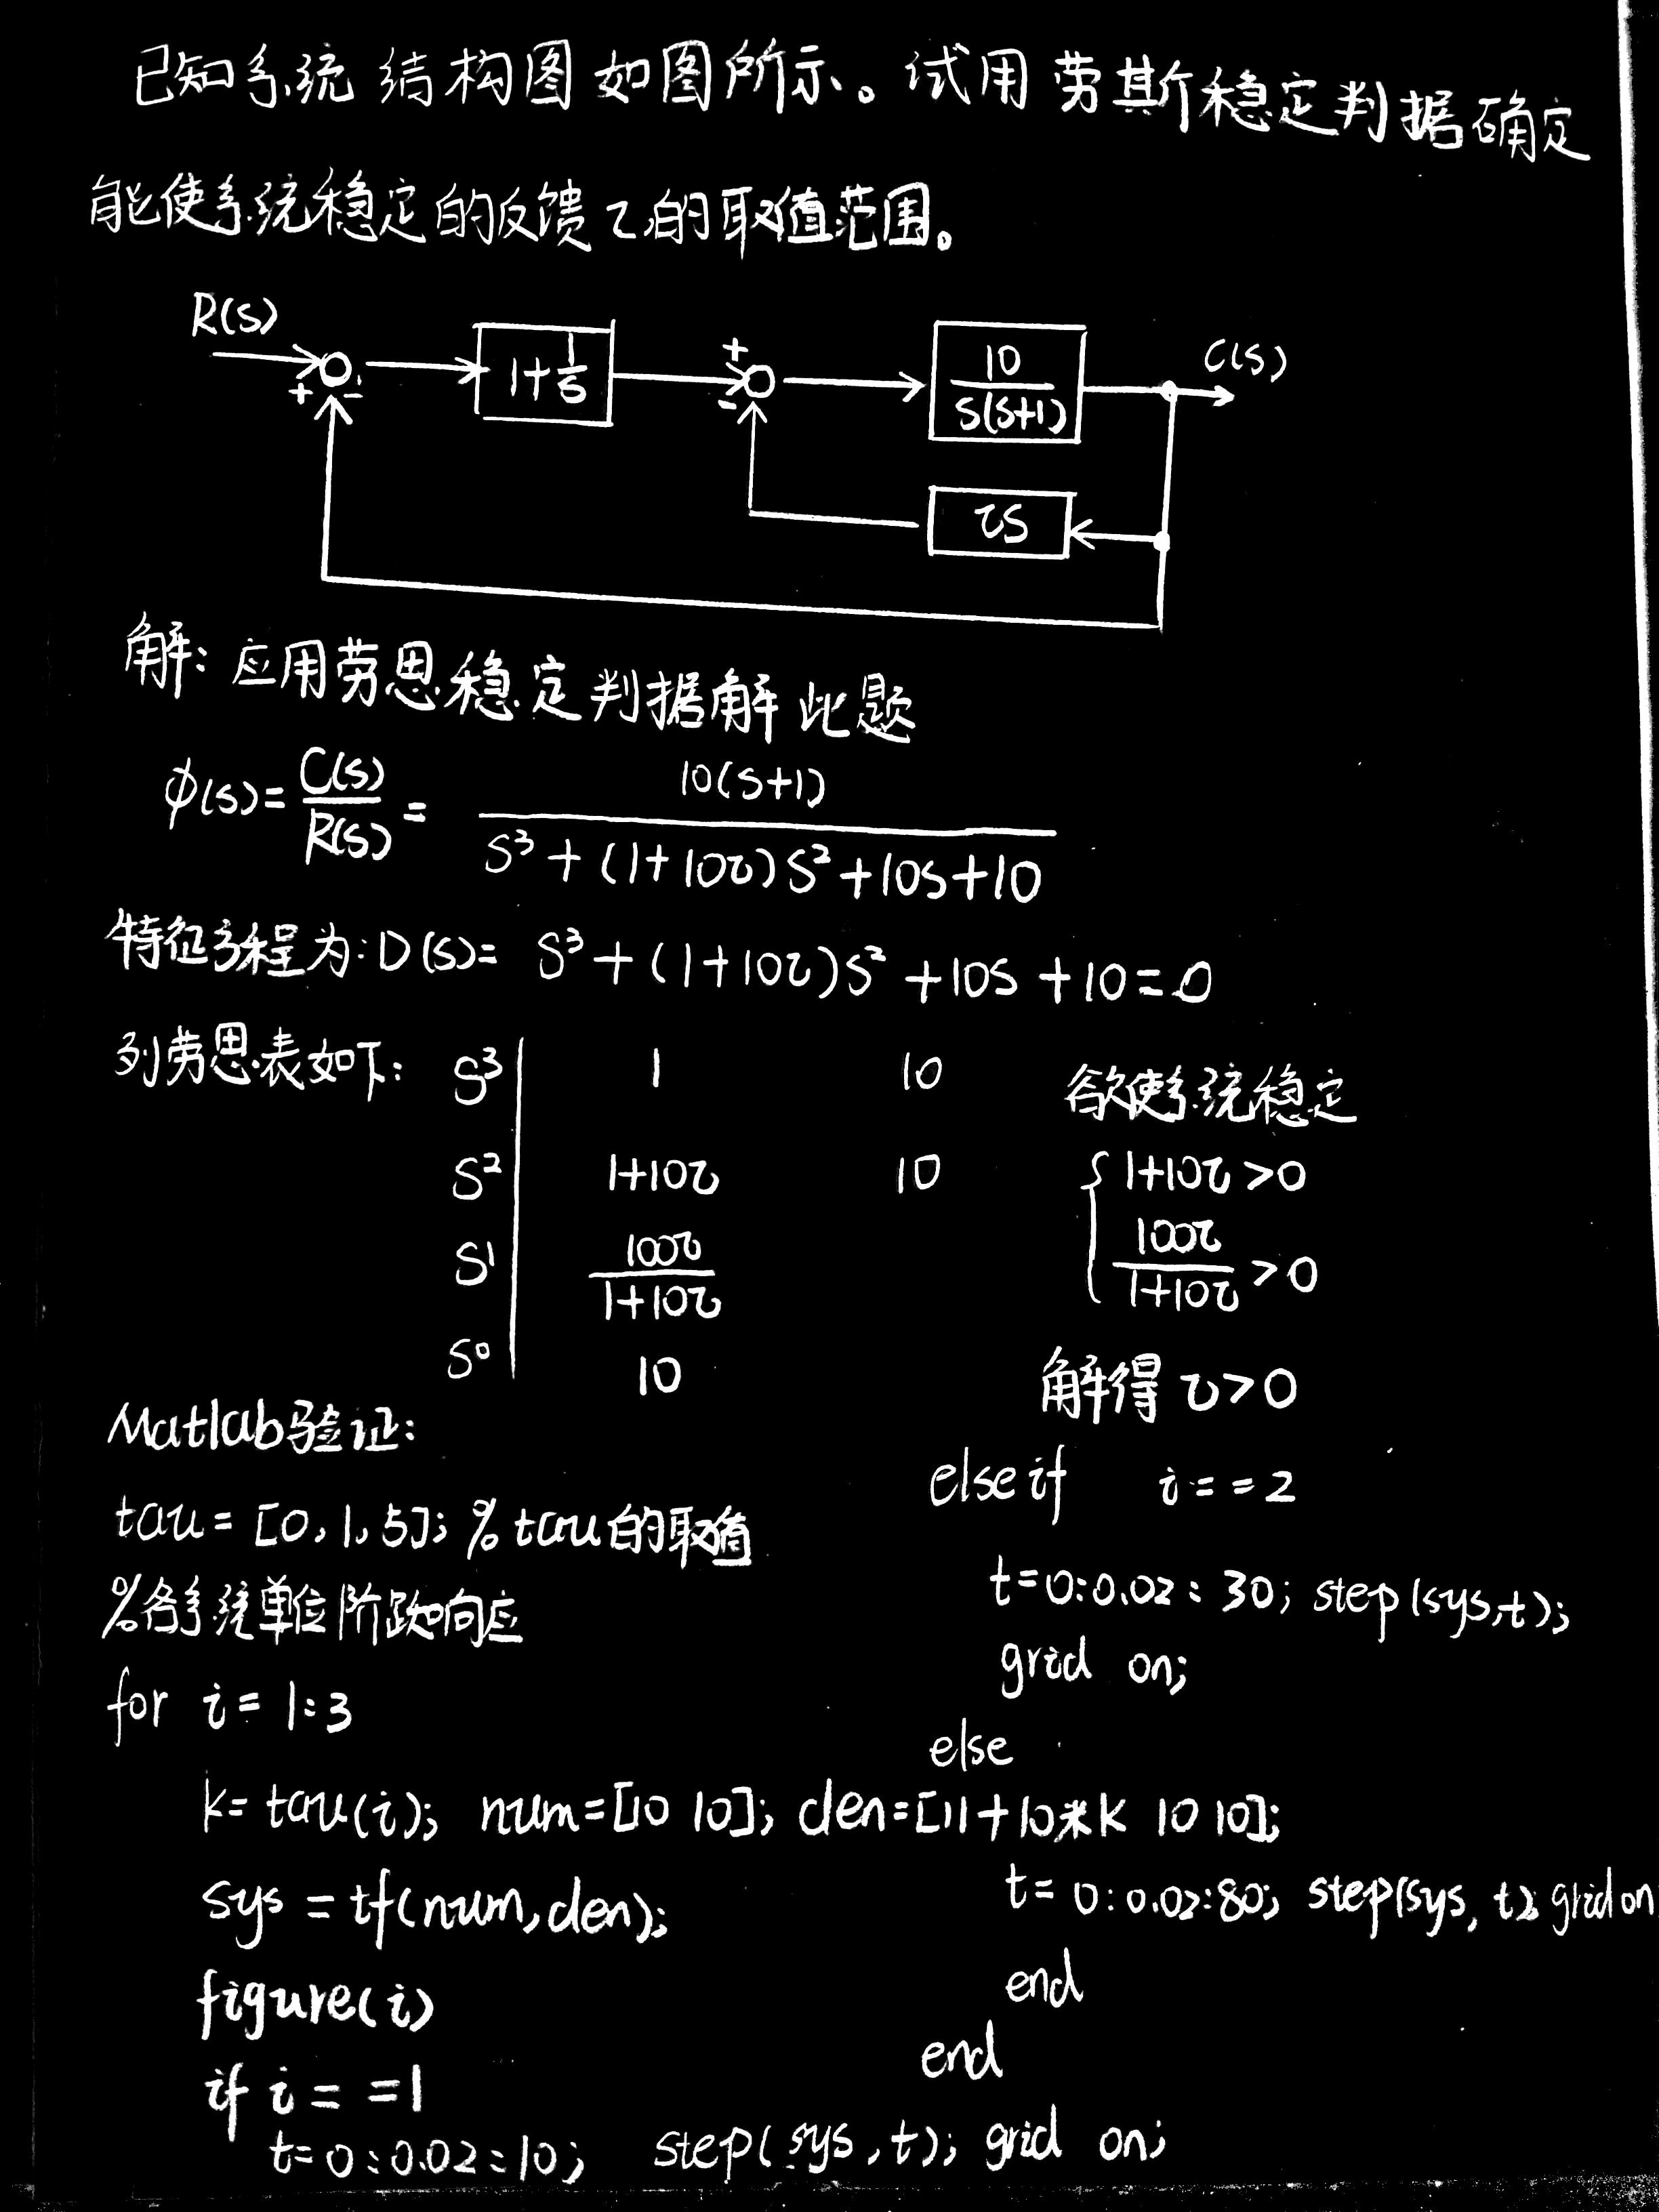 已知系统结构图如图所示。试用劳斯稳定判据确定
能使系统稳定的反馈τ的取值范围。
R(s)
+
-
1+1/s
+
-
10/s(s+1)
C(s)
τs
解：应用劳思稳定判据解此题
φ(s)=C(s)/R(s)=10(s+1)/(s³+(1+10τ)s²+10s+10)
特征方程为:D(s)= s³+(1+10τ)s²+10s+10=0
列劳思表如下:
s³ | 1 10
s² | 1+10τ 10
s¹ | 100τ/(1+10τ)
s⁰ | 10
欲使系统稳定
{ 1+10τ>0
100τ/(1+10τ)>0
解得 τ>0
Matlab验证:
tau=[0,1,5];%tau的取值
%各系统单位阶跃响应
for i=1:3
k=tau(i); num=[10 10]; den=[1 1+10*k 10 10];
sys=tf(num,den);
figure(i)
if i==1
t=0:0.02:10; step(sys,t); grid on;
else if i==2
t=0:0.02:30; step(sys,t);
grid on;
else
t=0:0.02:80; step(sys,t); grid on
end
end